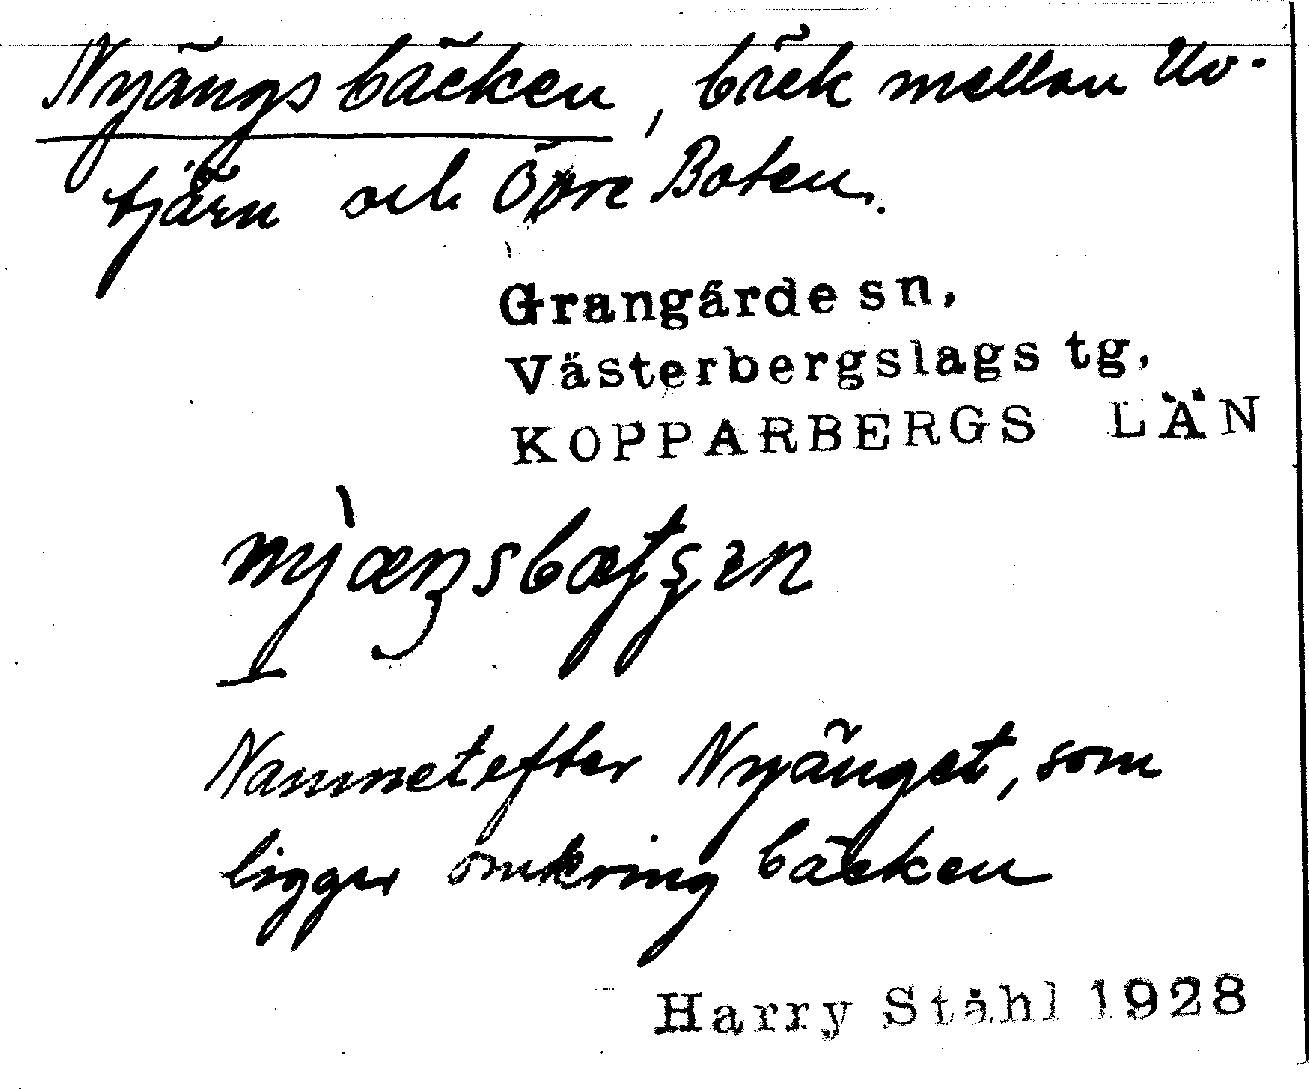 Nyängsbäcken, bäck mellan Uv-
tjärn och Övre Boten.
Grangärde sn,
Västerbergslags tg,
KOPPARBERGS LÄN
Namnet efter Nyänget, som
ligger omkring bäcken
Harry Ståhl 1928